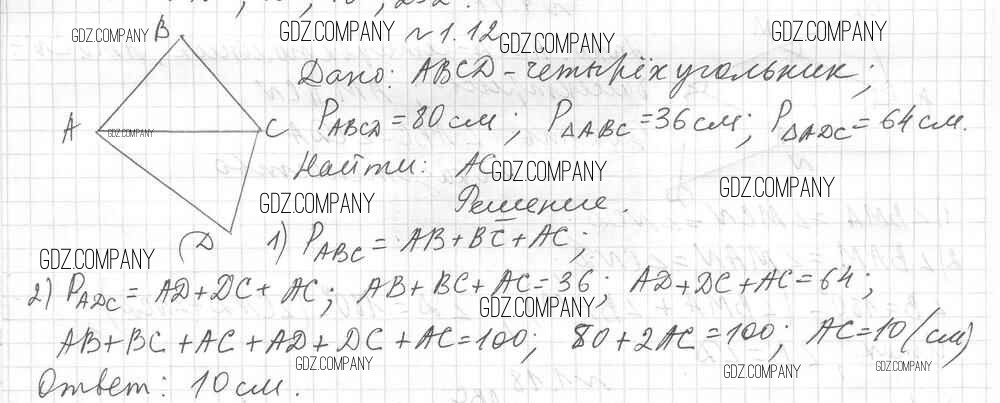 GDZ.COMPANY B GDZ.COMPANY №1.12 GDZ.COMPANY GDZ.COMPANY
Дано: ABCD - четырёхугольник;
A GDZ.COMPANY C P_ABCD = 80 см; P_ΔABC = 36 см; P_ΔADC = 64 см.
Найти: AC GDZ.COMPANY GDZ.COMPANY
GDZ.COMPANY Решение.
GDZ.COMPANY D 1) P_ABC = AB + BC + AC;
2) P_ADC = AD + DC + AC; AB + BC + AC = 36; AD + DC + AC = 64;
GDZ.COMPANY
AB + BC + AC + AD + DC + AC = 100; 80 + 2AC = 100; AC = 10 (см)
GDZ.COMPANY GDZ.COMPANY GDZ.COMPANY
Ответ: 10 см.